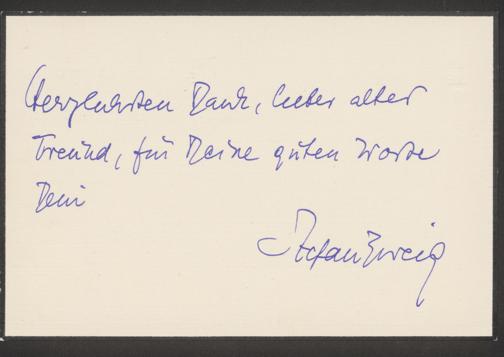 Herzlichsten Dank, lieber alter
Freund, für Deine guten Worte
Dein
Stefan Zweig